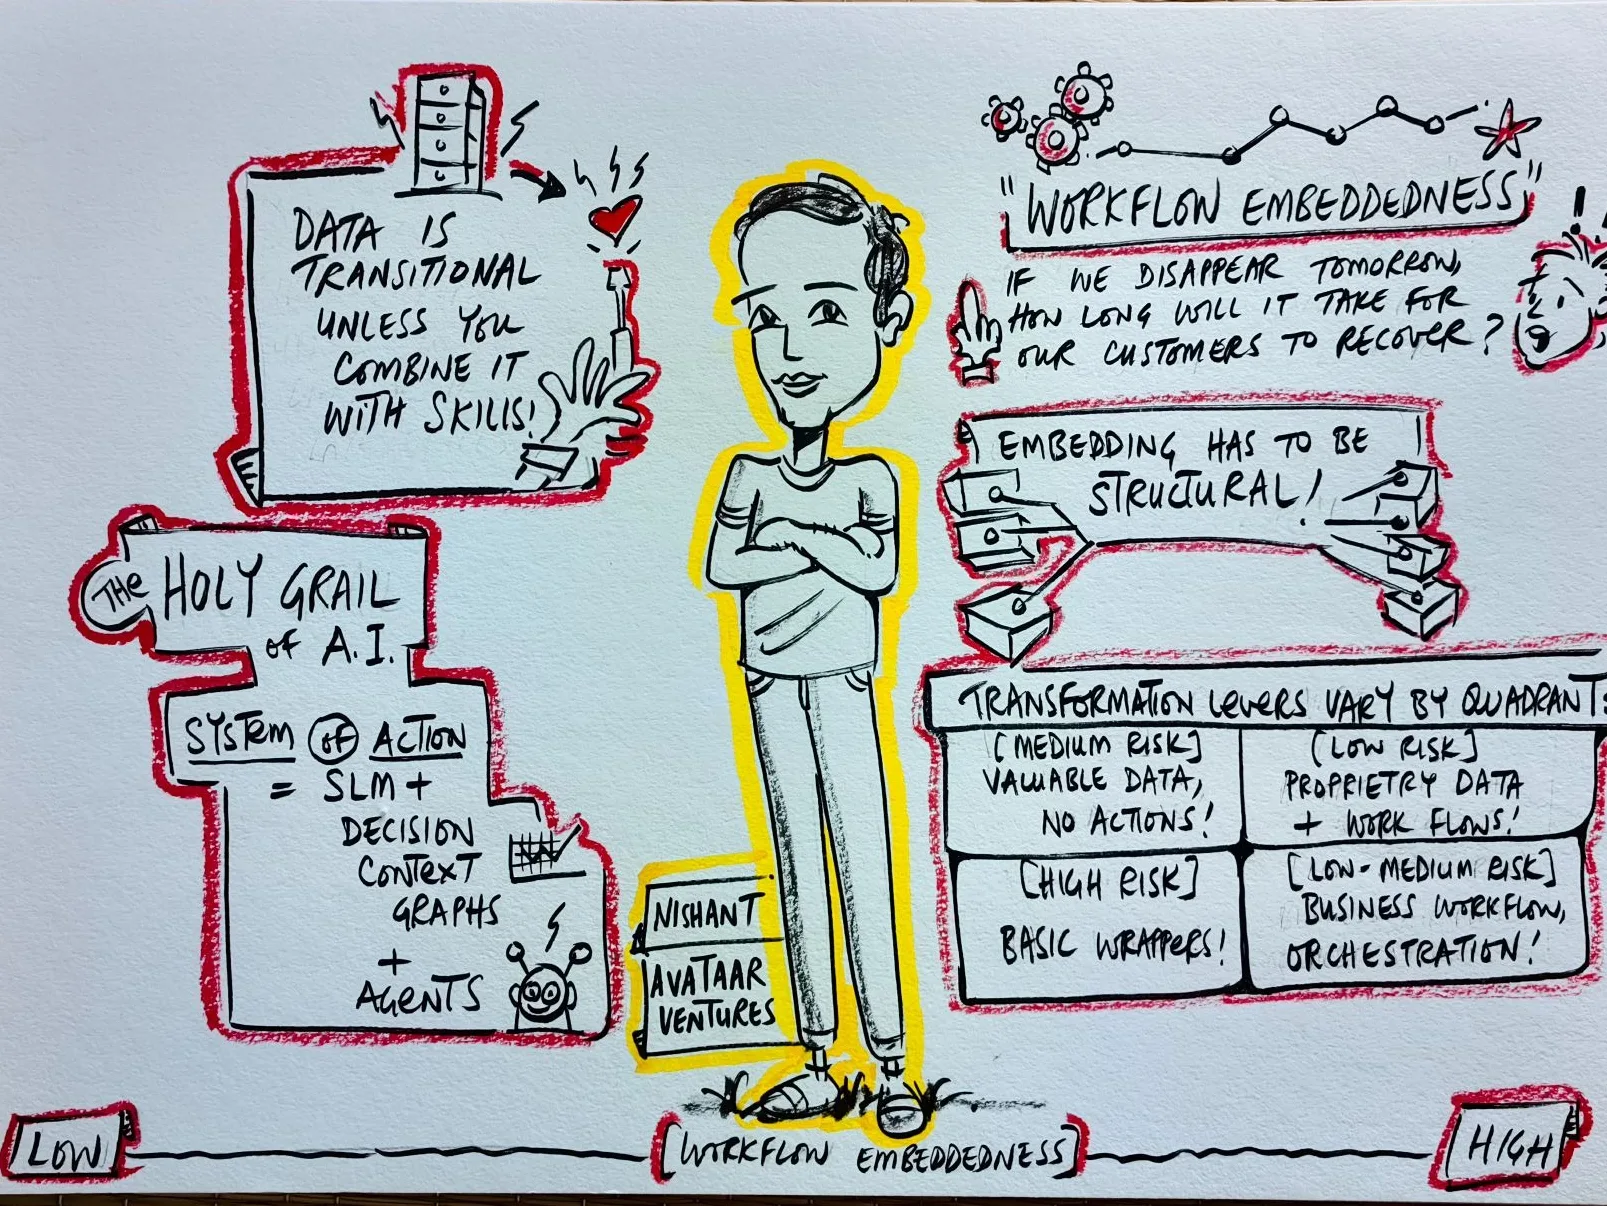 DATA IS
TRANSITIONAL
UNLESS YOU
COMBINE IT
WITH SKILLS!
THE
HOLY GRAIL
OF A.I.
SYSTEM OF ACTION
= SLM +
DECISION
CONTEXT
GRAPHS
+
AGENTS
NISHANT
AVATAAR
VENTURES
"WORKFLOW EMBEDDEDNESS"
IF WE DISAPPEAR TOMORROW,
HOW LONG WILL IT TAKE FOR
OUR CUSTOMERS TO RECOVER?
EMBEDDING HAS TO BE
STRUCTURAL!
TRANSFORMATION LEVERS VARY BY QUADRANT:
[MEDIUM RISK]
VALUABLE DATA,
NO ACTIONS!
[LOW RISK]
PROPRIETRY DATA
+ WORK FLOWS!
[HIGH RISK]
BASIC WRAPPERS!
[LOW-MEDIUM RISK]
BUSINESS WORKFLOW,
ORCHESTRATION!
LOW
[WORKFLOW EMBEDDEDNESS]
HIGH